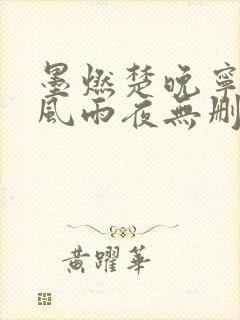 墨燃楚晚寧
風雨夜無刪
黃躍華